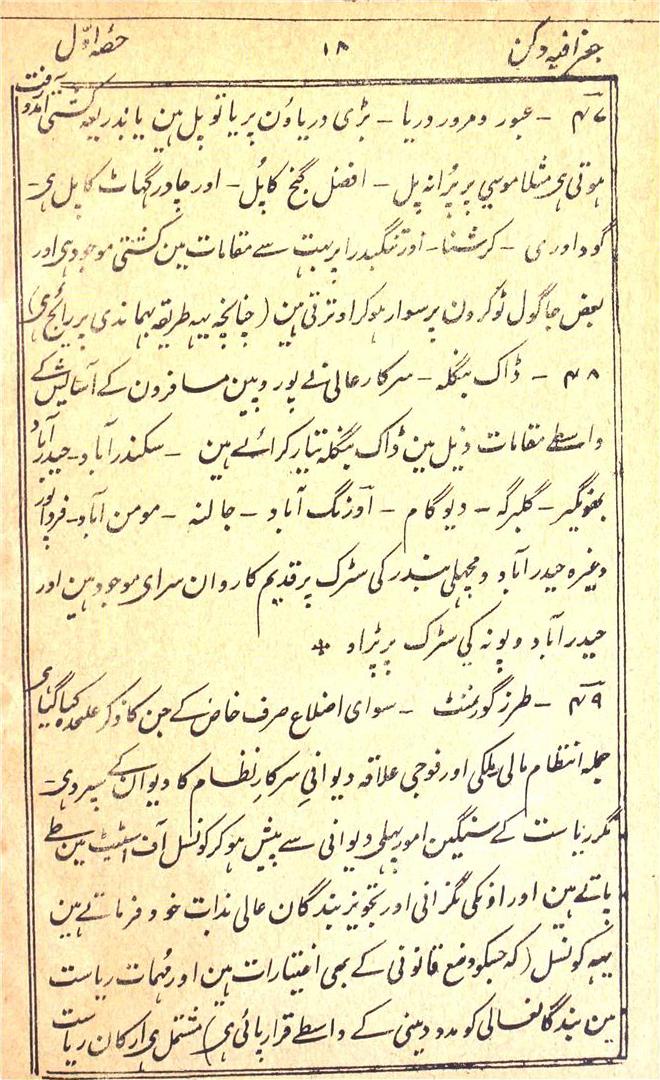 جغرافیہ دکن ۱۸ حصّہ اوّل
۴۷ - عبور و مرور دریا - بڑی دریاؤن پر یا تو پل ہین یا بذریعہ کشتی آمدورفت
ہوتی ہی مثلا موسیٰ پر پُرانہ پل - افضل گنج کا پُل - اور چادر گہاٹ کا پل ہی -
گوداوری - کرشنا - اور تنگبدرا پر بہت سے مقامات مین کشتی موجود ہی اور
بعض جا گول ٹوکرون پر سوار ہوکر اوترتی ہین (چنانچہ یہہ طریقہ بہما ندی پر رائج ہی)
۴۸ - ڈاک بنگلہ - سرکار عالی نے یوروپین مسافرون کے آسایش کے
واسطے مقامات ذیل مین ڈاک بنگلہ تیار کرائے ہین - سکندرآباد - حیدرآباد
بھونگیر - گلبرگہ - دیوگام - آورنگ آباد - جالنہ - مومن آباد -
وغیرہ حیدرآباد و مچہلی بندر کی سڑک پر قدیم کاروان سرای موجود ہین اور
حیدرآباد و پونہ کی سڑک پر پڑاو *
۴۹ - طرز گورنمنٹ - سوای اضلاع صرف خاص کے جن کا ذکر علحدہ کیا گیا ہی
جملہ انتظام مالی ملکی اور فوجی علاقہ دیوانیِ سرکارِ نظام کا دیوان کے سپرد ہی -
مگر ریاست کے سنگین امور پہلی دیوانی سے پیش ہوکر کونسل آف اسٹیٹ مین طے
پاتے ہین اور اونکی نگرانی اور تجویز بندگان عالی بذات خود فرماتے ہین
یہہ کونسل (کہ جسکو وضع قانونی کے بھی اختیارات ہین اور مُہمات ریاست
مین بندگانعالی کو مدد دینی کے واسطے قرار پائی ہی) مشتمل ہی ارکان ریاست